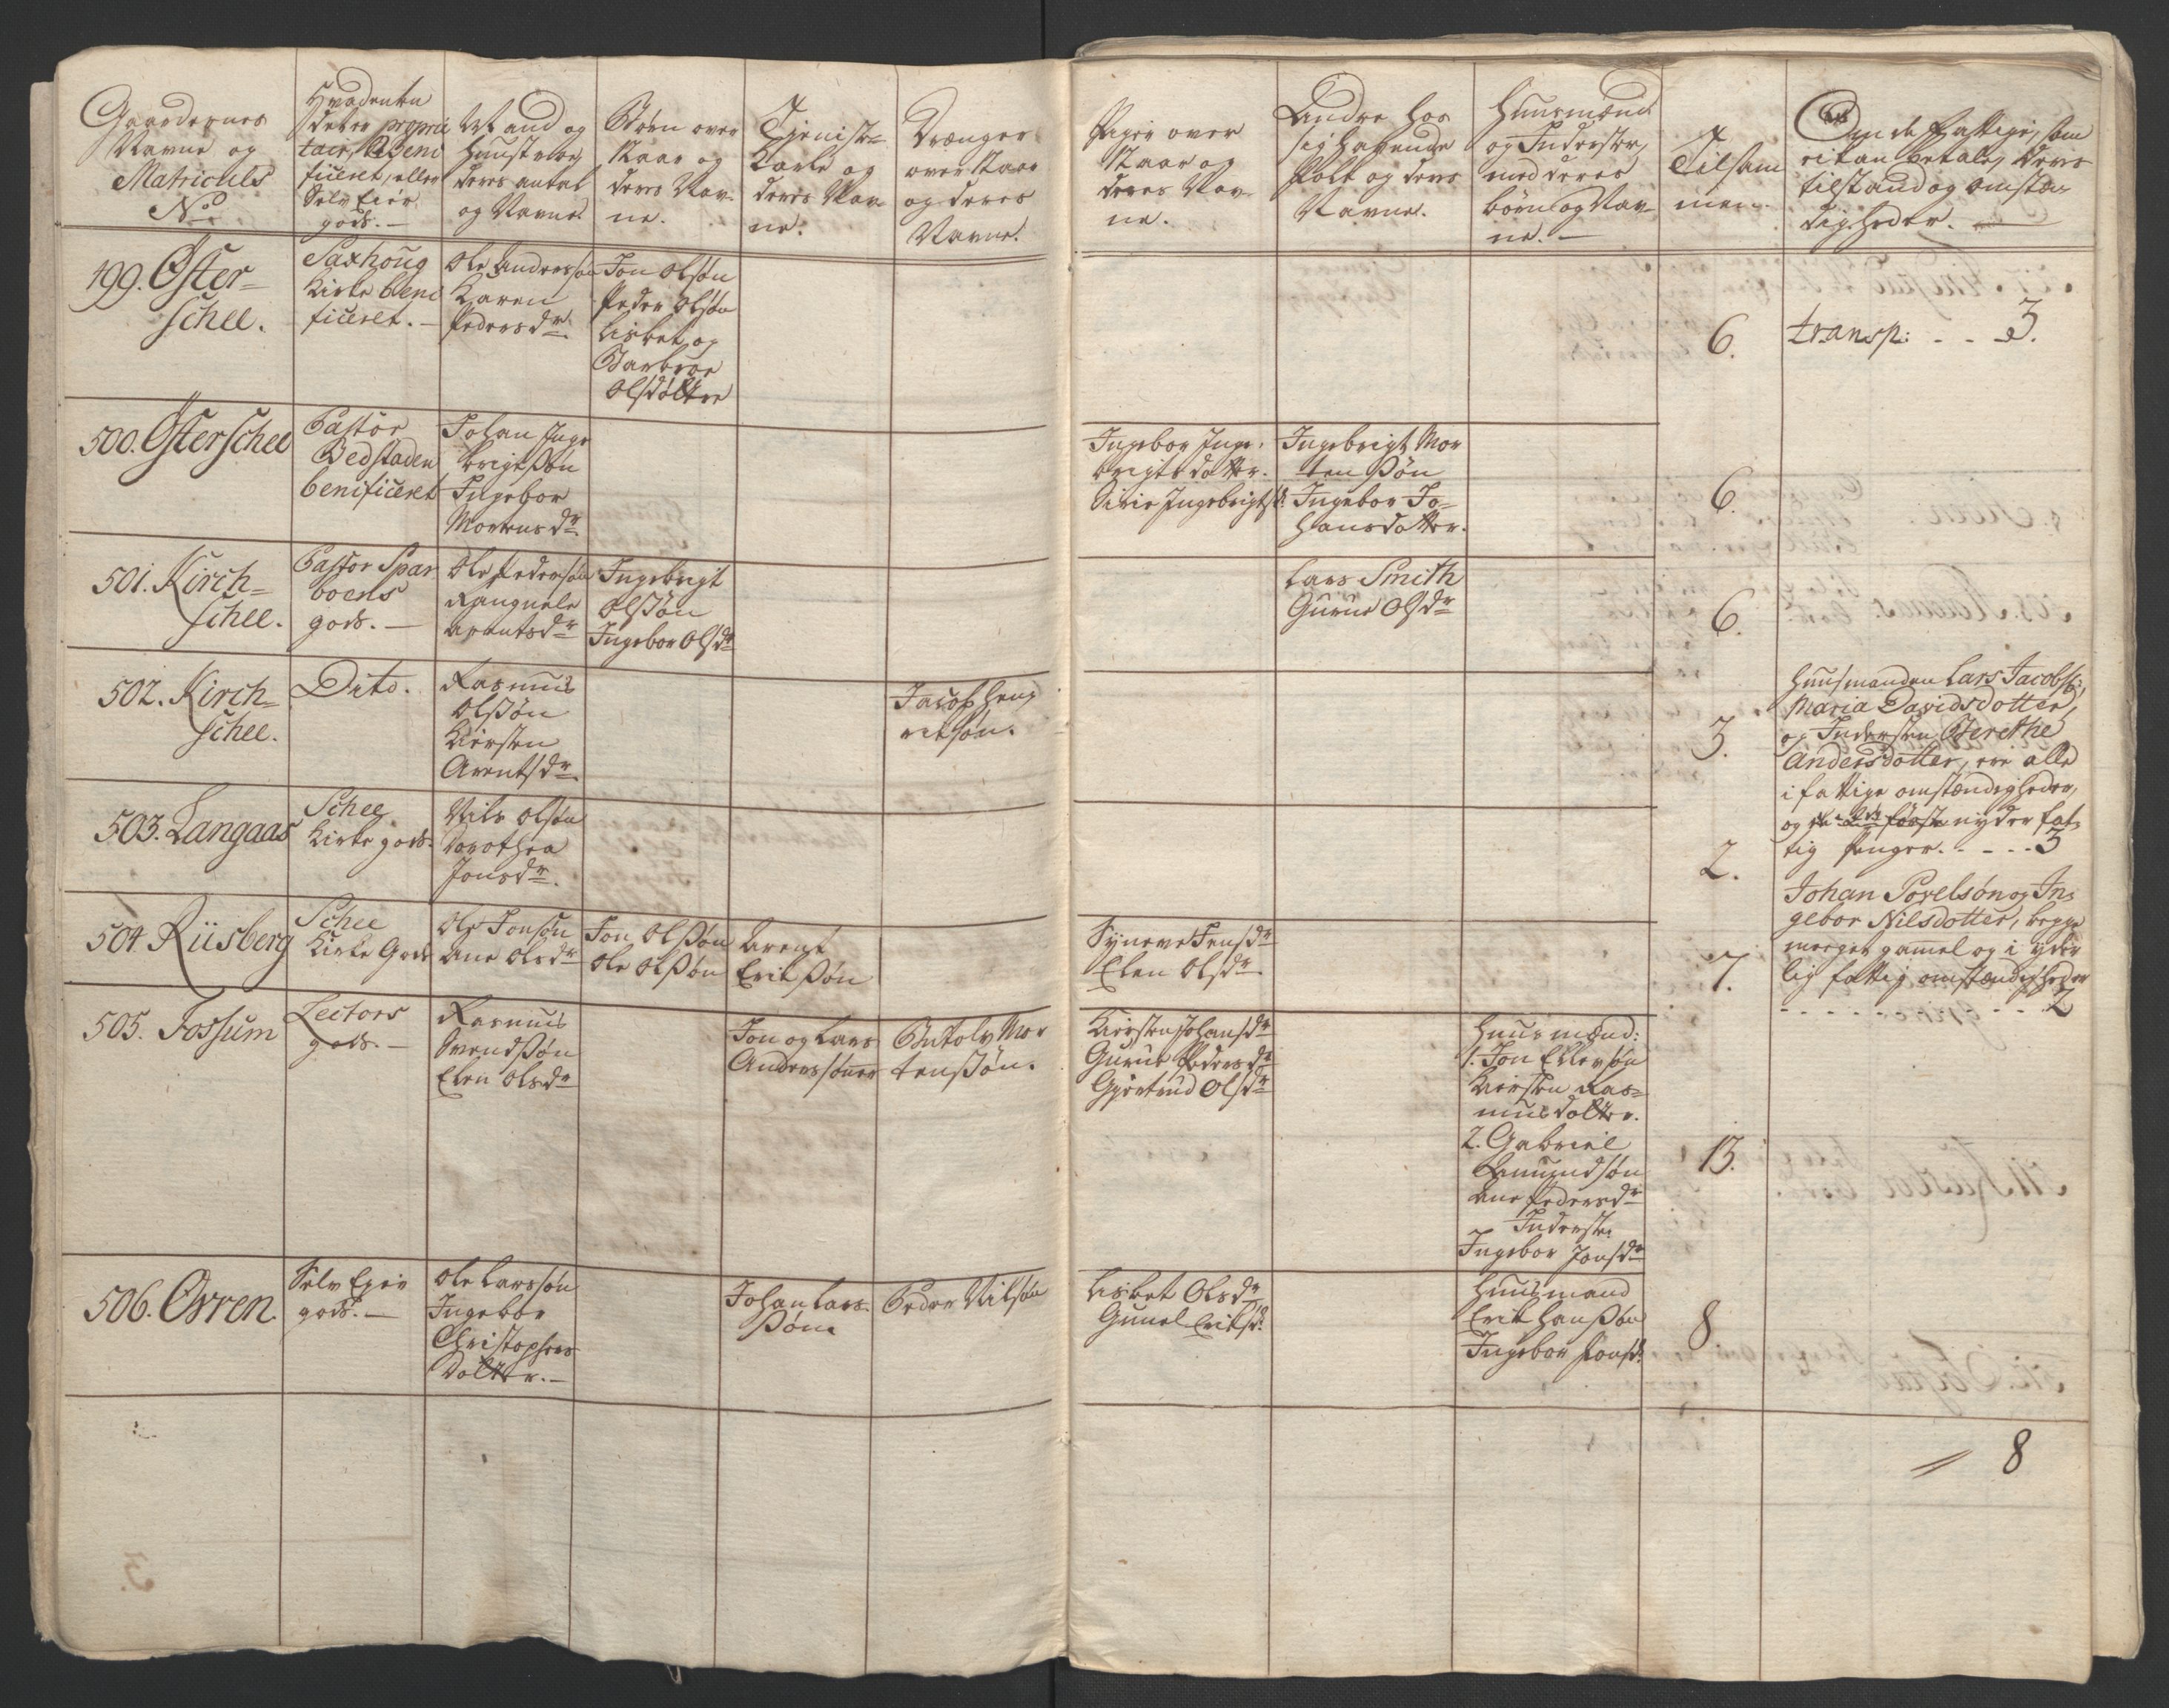 Gaardernes
Navne og
Matriculs
No.
Hvadenten
det er proprie
tair, Beni
ficeret, eller
Selv Eier
gods.
Mand og
Hustrue,
deres antal
og Navne.
Børn over
8 Aar og
deres Nav-
ne.
Tjeniste
Karle og
deres Nav
ne.
Drænger
over 8 Aar
og deres
Navne.
Piger over
8 Aar og
deres Nav-
ne.
Andre hos
sig havende
Folk og deres
Navne.
Huusmænd
og Inderster,
med deres
børn og Nav-
ne.
Tilsam
men.
Om de Fattige, som
ei kan betale, deres
tilstand og omstæn-
digheder.
499. Øster-
schee.
Saxhoug
Kirke beni
ficeret.
Ole Andersøn
Karen
Pedersdr.
Jon Olsøn
Peder Olsøn
Lisbet og
Barbroe
Olsdøttre
6.
transp: - - 3.
500. Østerschee
Pastor
Vedstaden
benificeret
Johan Inge
brigtsøn
Ingebor
Mortensdr.
Ingebor Inge-
brigtsdatter.
Sirie Ingebrigtsd.
Ingebrigt Mor
tensøn
Ingebor Jo-
hansdatter.
6.
501. Kirch-
schee.
Pastor Spar
boens
gods.
Ole Pedersøn
Rangnele
Arentsdr.
Ingebrigt
Olsøn
Ingebor Olsdr.
Lars Smith
Gurue Olsdr.
6.
502. Kirch-
schee.
Dito.
Rasmus
Olsøn
Kiersten
Arentsdr.
Jacob Hen
richsøn.
3.
Huusmanden Lars Jacobs:,
Maria Davidsdotter,
og Indersten Berethe
Andersdotter, ere alle
i fattige omstændigheder,
og de 2de første nyder fat-
tig penger. - - - 3
503. Langaas
Schee
Kirke gods.
Nils Olsøn
Dorothea
Jonsdr.
2.
Johan Povelsøn og In-
gebor Nilsdotter, begge
meeget gamel og i yder
lig fattig omstændigheder
- - - - - - - - 2
504. Riisberg
Schee
Kirke Gods
Ole Jonsøn
Ane Olsdr.
Jon Olsøn
Ole Olsøn
Arent
Eriksøn
Synneve Jensdr.
Elen Olsdr.
7.
505. Fossum
Lectors
gods.
Rasmus
Svendsøn
Elen Olsdr.
Jon og Lars
Anderssønner
Botolv Mor
tensøn.
Kiersten Johansdr.
Gurue Pedersdr.
Gjertrud Olsdr.
Huusmænd:
1. Jon Ellevsøn
Kiersten Ras-
musdatter.
2. Gabriel
Amundsøn
Ane Pedersdr.
Inderste
Ingebor Jonsdr.
13.
506. Ørren.
Selv Eyer
gods.
Ole Larssøn
Ingebor
Christophers
Datter.
Johan Lars-
søn.
Peder Nilsøn
Lisbet Olsdr.
Gunel Eriksd.
Huusmand
Erik Hansøn
Ingebor Jonsd.
8
8